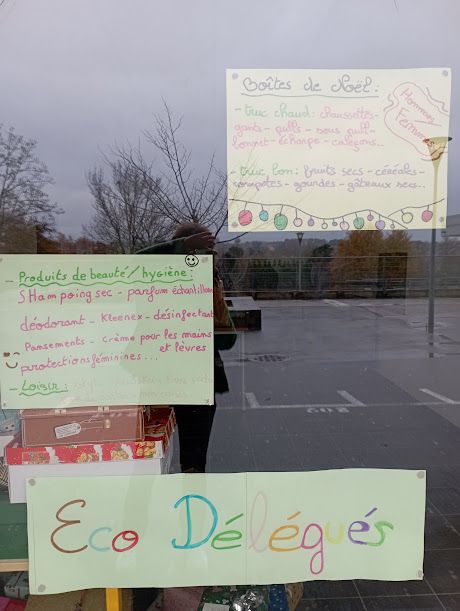 Boîtes de Noël :
Hommes
Femmes
- truc chaud : chaussettes -
gants - pulls - sous pull -
bonnet - écharpe - caleçons..
- truc bon : fruits secs - céréales -
compotes - gourdes - gâteaux secs..
- Produits de beauté / hygiène :
SHampoing sec - parfum échantillon
déodorant - Kleenex - désinfectant
Pansements - crème pour les mains
et lèvres
protections féminines...
- Loisir :
Eco Délégués